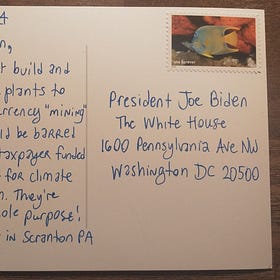 4
t build and
plants to
urrency "mining"
ld be barred
taxpayer funded
for climate
They're
ole purpose!
in Scranton PA
forever
President Joe Biden
The White House
1600 Pennsylvania Ave NW
Washington DC 20500